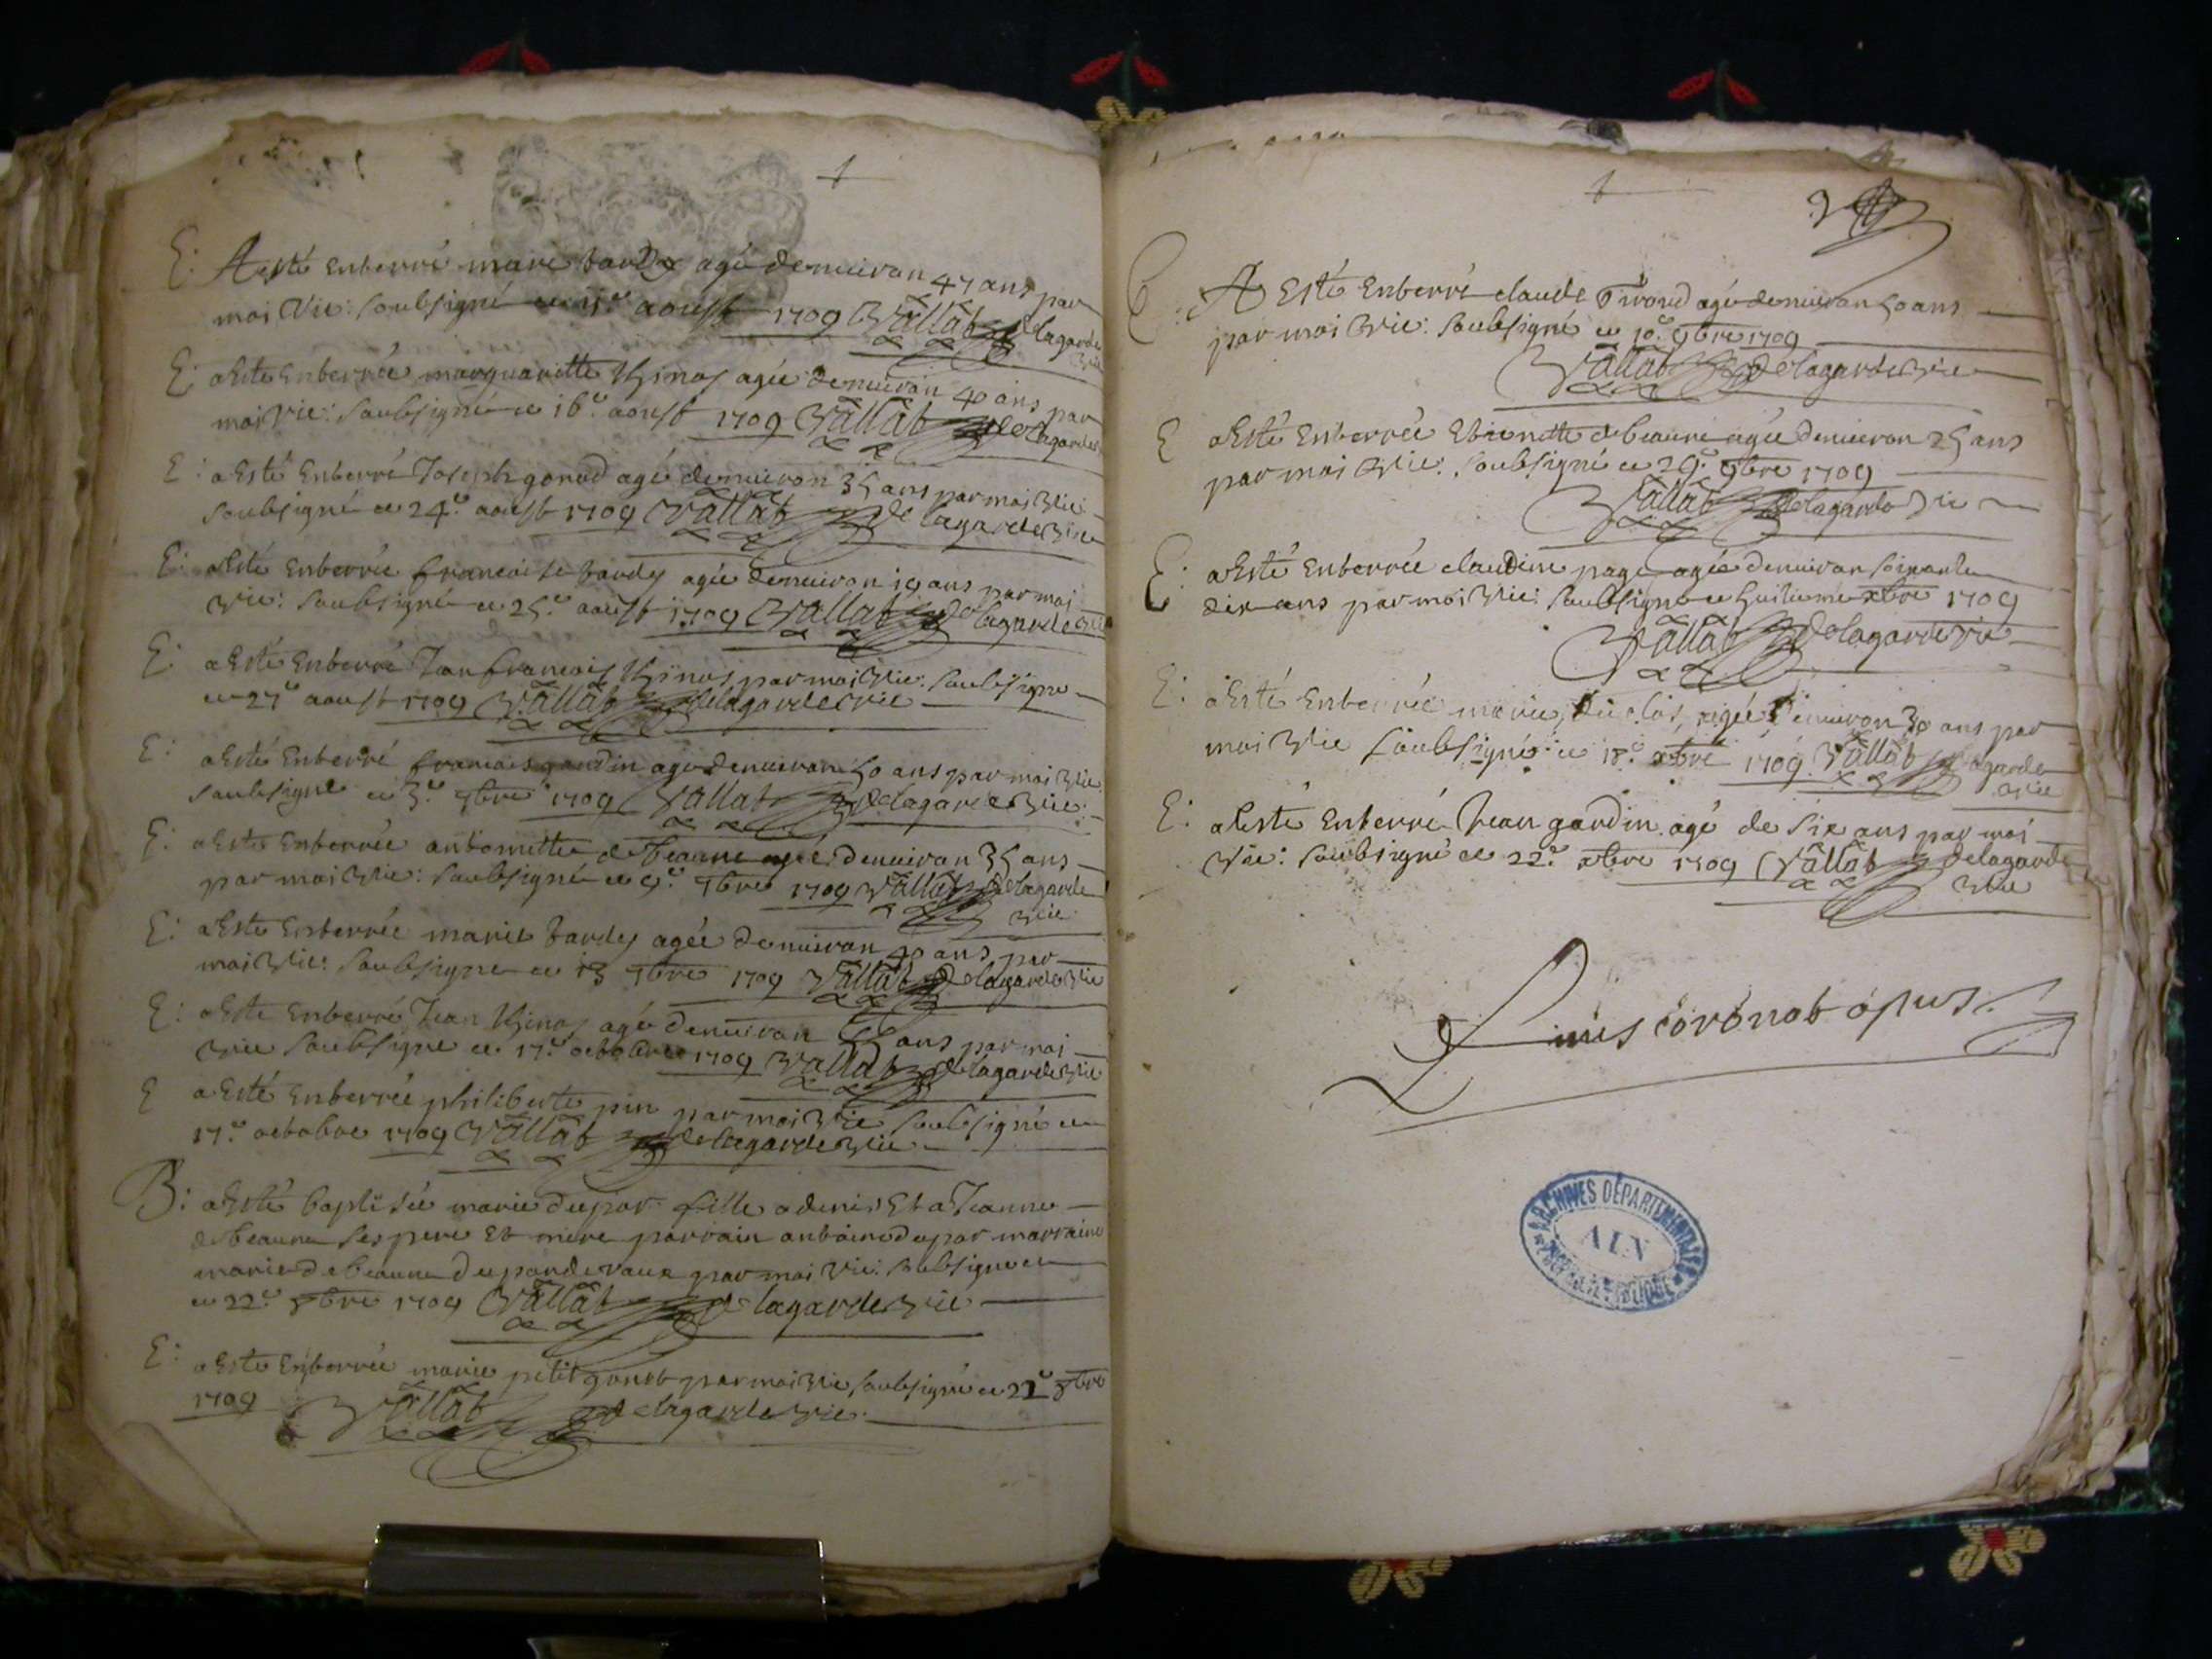 E: A esté enterré marie bardy agé denuiron 47 ans par
moi Vic: soubsigné ce aoust 1709 Vallat Delagarde
vic
E: a esté enterrée marguaritte agée denuiron 40 ans par
moi vic: soubsigné ce 16.e aoust 1709 Vallat Delagarde
E: a esté enterré Joseph gonod agé denuiron 35 ans par moi vic:
soubsigné ce 24.e aoust 1709 Vallat De lagarde vic
E: a esté enterrée francoise bardy agée denuiron 10 ans par moi
vic: soubsigné ce 25.e aoust 1709 Vallat Delagarde vic
E: a esté enterré Jan francois par moi vic: soubsigne
ce 27.e aoust 1709 Vallat Delagarde vic
E: a esté enterré francois gandin agé denuiron 50 ans par moi vic
soubsigné ce 3.e 7bre 1709 Vallat Delagarde vic:
E: a esté enterrée anthoinette debeaune agée denuiron 35 ans
par moi vic: soubsigné ce 9.e 7bre 1709 Vallat Delagarde
vic
E: a esté enterrée marie bardy agée denuiron 40 ans par
moi vic: soubsigne ce 13 7bre 1709 Vallat Delagarde vic
E: a esté enterré Jean agé denuiron ans par moi
vic soubsigne ce 17.e octobre 1709 Vallat Delagarde vic
E a esté enterrée philiberte pin par moi vic soubsigné ce
17.e octobre 1709 Vallat Delagarde vic
B: a esté baptisée marie dupar fille a denis et a Jeanne
debeaune ses pere et mere parrain anthoine dupar marraine
marie debeaune du par moi vic: soubsigne
ce 22.e 8bre 1709 Vallat De lagarde vic
E: a esté enterrée marie petit par moi vic soubsigné ce 22.e 8bre
1709 Vallat Delagarde vic:
E: A esté enterré claude agé denuiron 50 ans
par moi vic: soubsigné ce 10.e 9bre 1709
Vallat Delagarde vic
E a esté enterrée Etienette debeaune agée denuiron 25 ans
par moi vic: soubsigné ce 29.e 9bre 1709
Vallat Delagarde vic
E: a esté enterrée claudine page agée denuiron soixante
dix ans par moi vic: soubsigne ce huitieme xbre 1709
Vallat Delagarde vic
E: a esté enterrée marie duclos, agée denuiron 30 ans par
moi vic soubsigné ce 18.e xbre 1709 Vallat Delagarde
vic
E: a esté enterré Jean gandin agé de six ans par moi
vic: soubsigné ce 22.e xbre 1709 Vallat Delagarde
vic
finis coronat opus.
ARCHIVES DÉPARTEMENTALES
AIN